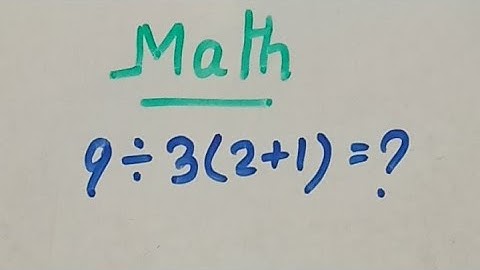 Math
9÷3(2+1)=?